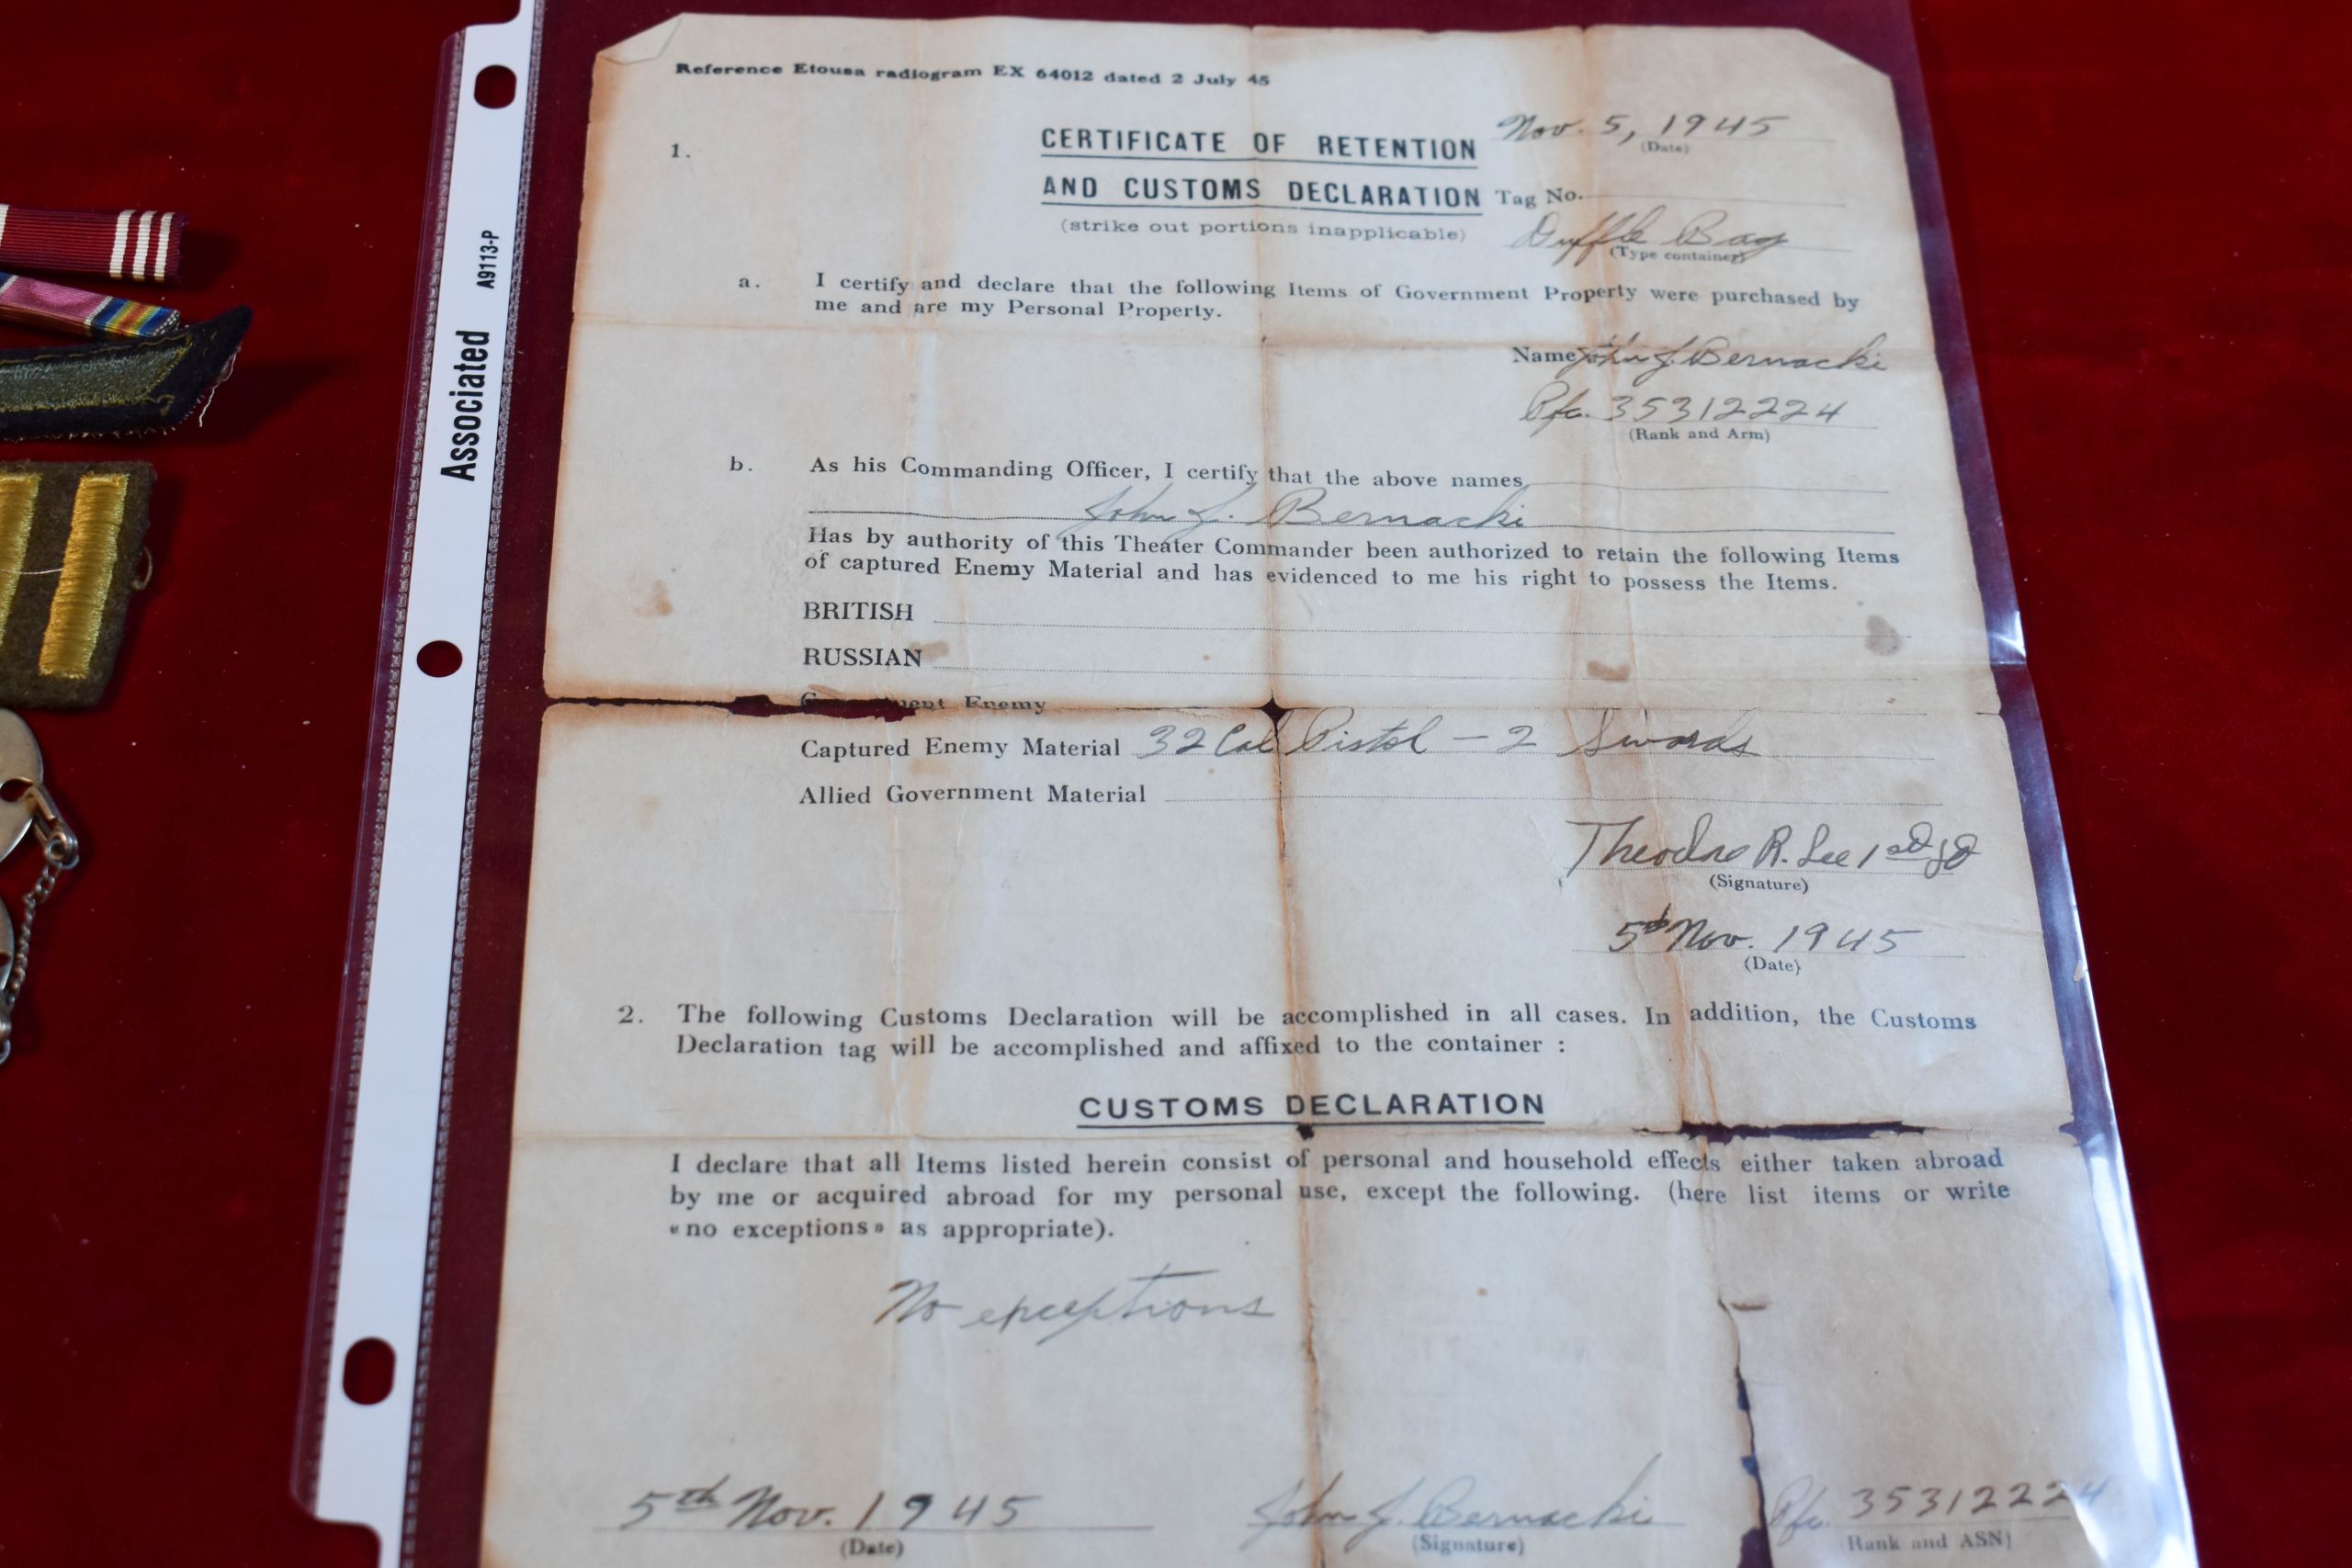 Associated A9113-P
Reference Etousa radiogram EX 64012 dated 2 July 45
Nov. 5, 1945
(Date)
1.
CERTIFICATE OF RETENTION
AND CUSTOMS DECLARATION
Tag No.
(strike out portions inapplicable)
Duffle Bag
(Type container)
a. I certify and declare that the following Items of Government Property were purchased by
me and are my Personal Property.
Name John J. Bernacki
Pfc. 35312224
(Rank and Arm)
b. As his Commanding Officer, I certify that the above names
John J. Bernacki
Has by authority of this Theater Commander been authorized to retain the following Items
of captured Enemy Material and has evidenced to me his right to possess the Items.
BRITISH
RUSSIAN
Enemy
Captured Enemy Material 32 Cal Pistol - 2 Swords
Allied Government Material
Theodre R. Lee 1st
(Signature)
5th Nov. 1945
(Date)
2. The following Customs Declaration will be accomplished in all cases. In addition, the Customs
Declaration tag will be accomplished and affixed to the container :
CUSTOMS DECLARATION
I declare that all Items listed herein consist of personal and household effects either taken abroad
by me or acquired abroad for my personal use, except the following. (here list items or write
«no exceptions» as appropriate).
No exceptions
5th Nov. 1945 John J. Bernacki Pfc. 35312224
(Date) (Signature) Rank and ASN)